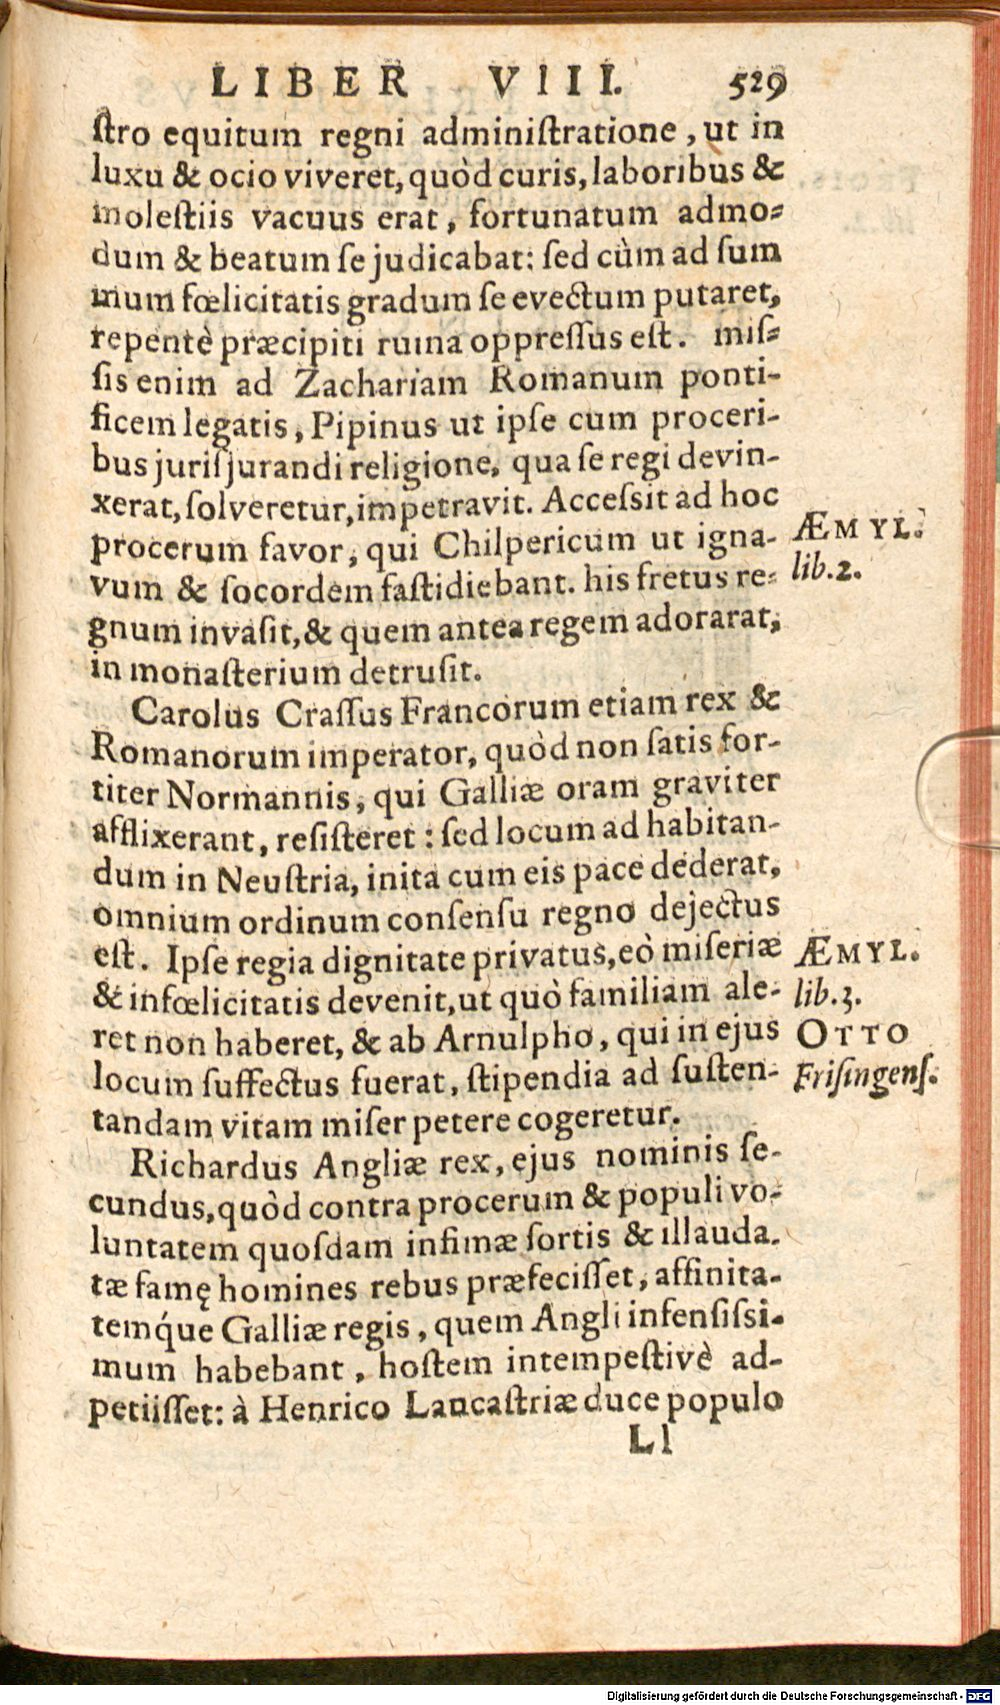 LIBER VIII. 529
ſtro equitum regni adminiſtratione, ut in
luxu & ocio viveret, quòd curis, laboribus &
moleſtiis vacuus erat, fortunatum admo-
dum & beatum ſe judicabat: ſed cùm ad ſum
mum fœlicitatis gradum ſe evectum putaret,
repentè præcipiti ruina oppreſſus eſt. miſ-
ſis enim ad Zachariam Romanum ponti-
ficem legatis, Pipinus ut ipſe cum proceri-
bus juriſjurandi religione, qua ſe regi devin-
xerat, ſolveretur, impetravit. Acceſsit ad hoc
procerum favor, qui Chilpericum ut igna-
ÆMYL.
vum & ſocordem faſtidiebant. his fretus re-
lib.2.
gnum invaſit, & quem antea regem adorarat,
in monaſterium detruſit.
Carolus Craſſus Francorum etiam rex &
Romanorum imperator, quòd non ſatis for-
titer Normannis, qui Galliæ oram graviter
afflixerant, reſiſteret: ſed locum ad habitan-
dum in Neuſtria, inita cum eis pace dederat,
omnium ordinum conſenſu regno dejectus
eſt. Ipſe regia dignitate privatus, eò miſeriæ
ÆMYL.
& infœlicitatis devenit, ut quò familiam ale-
lib.3.
ret non haberet, & ab Arnulpho, qui in ejus
OTTO
locum ſuffectus fuerat, ſtipendia ad ſuſten-
Friſingenſ.
tandam vitam miſer petere cogeretur.
Richardus Angliæ rex, ejus nominis ſe-
cundus, quòd contra procerum & populi vo-
luntatem quoſdam infimæ ſortis & illauda-
tæ famę homines rebus præfeciſſet, affinita-
temq́ue Galliæ regis, quem Angli infenſiſsi-
mum habebant, hoſtem intempeſtivè ad-
petiiſſet: à Henrico Lancaſtriæ duce populo
Ll
Digitalisierung gefördert durch die Deutsche Forschungsgemeinschaft - DFG